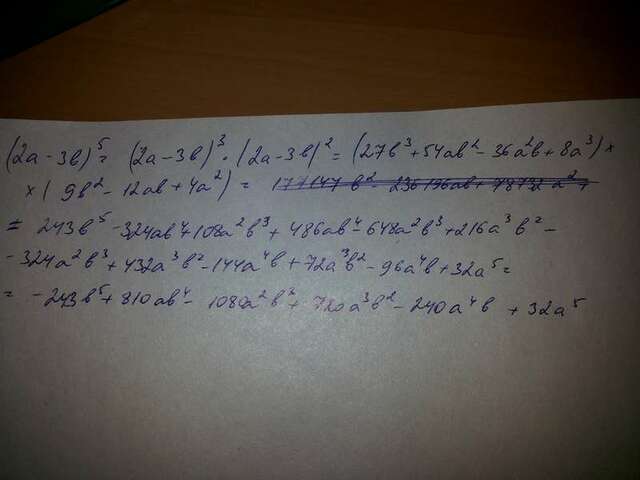 (2a - 3b)^5 = (2a - 3b)^3 · (2a - 3b)^2 = (27b^3 + 54ab^2 - 36a^2b + 8a^3) ×
× (9b^2 - 12ab + 4a^2) =
= 243b^5 - 324ab^4 + 108a^2b^3 + 486ab^4 - 648a^2b^3 + 216a^3b^2 -
- 324a^2b^3 + 432a^3b^2 - 144a^4b + 72a^3b^2 - 96a^4b + 32a^5 =
= -243b^5 + 810ab^4 - 1080a^2b^3 + 720a^3b^2 - 240a^4b + 32a^5